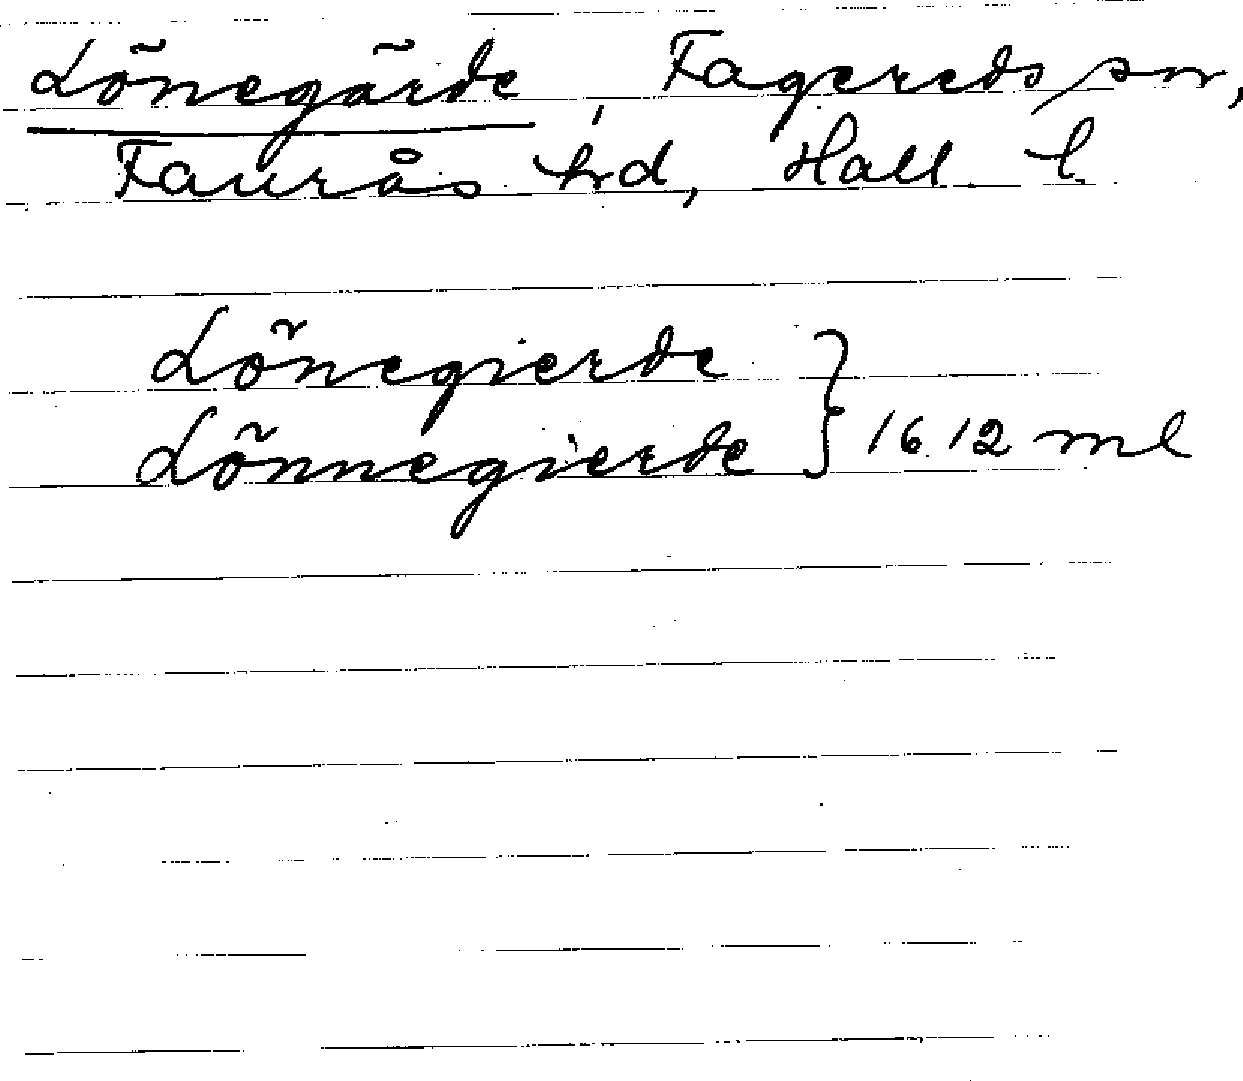 Lönegärde, Fagereds sn,
Faurås hd, Hall. l.
Lönegierde
Lönnegierde } 1612 ml